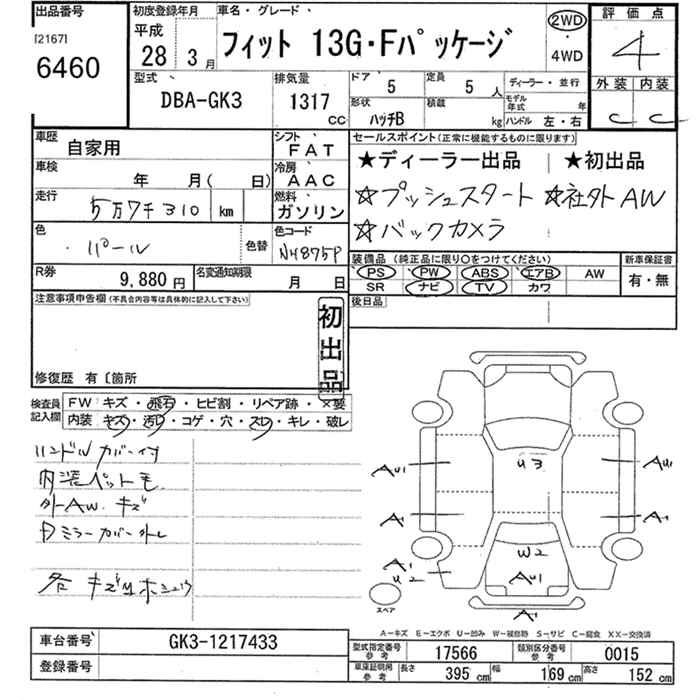 出品番号
[2167]
6460
初度登録年月
平成
28 3月
車名・グレード、
フィット 13G・Fパッケージ
2WD
・
4WD
評価点
4
外装 内装
C C
型式
DBA-GK3
排気量
1317
CC
ドア
5
定員
5 人
ディーラー・並行
形状
ハッチB
積載
kg
モデル年式 年
ハンドル 左・右
車歴
自家用
シフト
FAT
車検
年 月( 日)
冷房
AAC
走行
5万7千310 km
燃料
ガソリン
色
パール
色替
色コード
NH875P
R券
9,880 円
名変通知期限
月 日
セールスポイント(正常に機能するものに限ります)
★ディーラー出品 ★初出品
☆プッシュスタート ☆社外AW
☆バックカメラ
装備品(純正品に限り○をつけてください)
新車保証書
PS PW ABS エアB AW
有・無
SR ナビ TV カワ
後日品
注意事項申告欄(不具合内容等は具体的に記入して下さい)
初出品
修復歴 有〔箇所
検査員記入欄
FW キズ・飛石・ヒビ割・リペア跡・×要
内装 キズ・汚れ・コゲ・穴・スレ・キレ・破レ
ハンドルカバー付
内装ペット毛
外AW キズ
Fミラーカバー外レ
各キズ
U3
AU1
AU1
A1
A1
W2
A1
U2
AU1
A1
スペア
A－キズ E－エクボ U－凹み W－補修跡 S－サビ C－腐食 XX－交換済
車台番号
GK3-1217433
登録番号
型式指定番号
参考
17566
類別区分番号
参考
0015
車庫証明用
参考
長さ 395 cm 幅 169 cm 高さ 152 cm